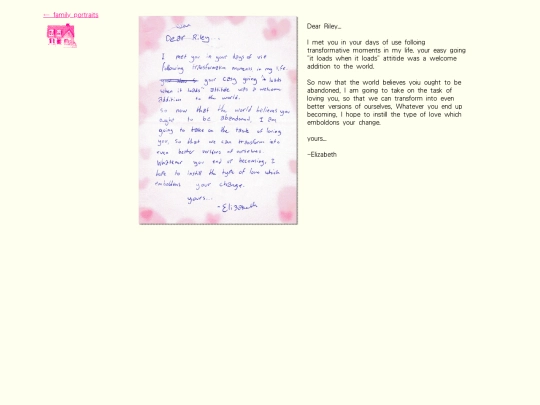 <-- family portraits
Dear Riley...
I met you in your days of use
following transformative moments in my life.
your easy going "it loads
when it loads" attitide was a welcome
addition to the world.
So now that the world believes you
ought to be abandoned, I am
going to take on the task of loving
you, so that we can transform into
even better versions of ourselves.
Whatever you end up becoming, I
hope to instill the type of love which
emboldens your change.
yours...
-Elizabeth
Dear Riley...
I met you in your days of use folloing
transformative moments in my life, your easy going
"it loads when it loads" attitide was a welcome
addition to the world.
So now that the world believes you ought to be
abandoned, I am going to take on the task of
loving you, so that we can transform into even
better versions of ourselves, Whatever you end up
becoming, I hope to instill the type of love which
emboldons your change.
yours...
-Elizabeth